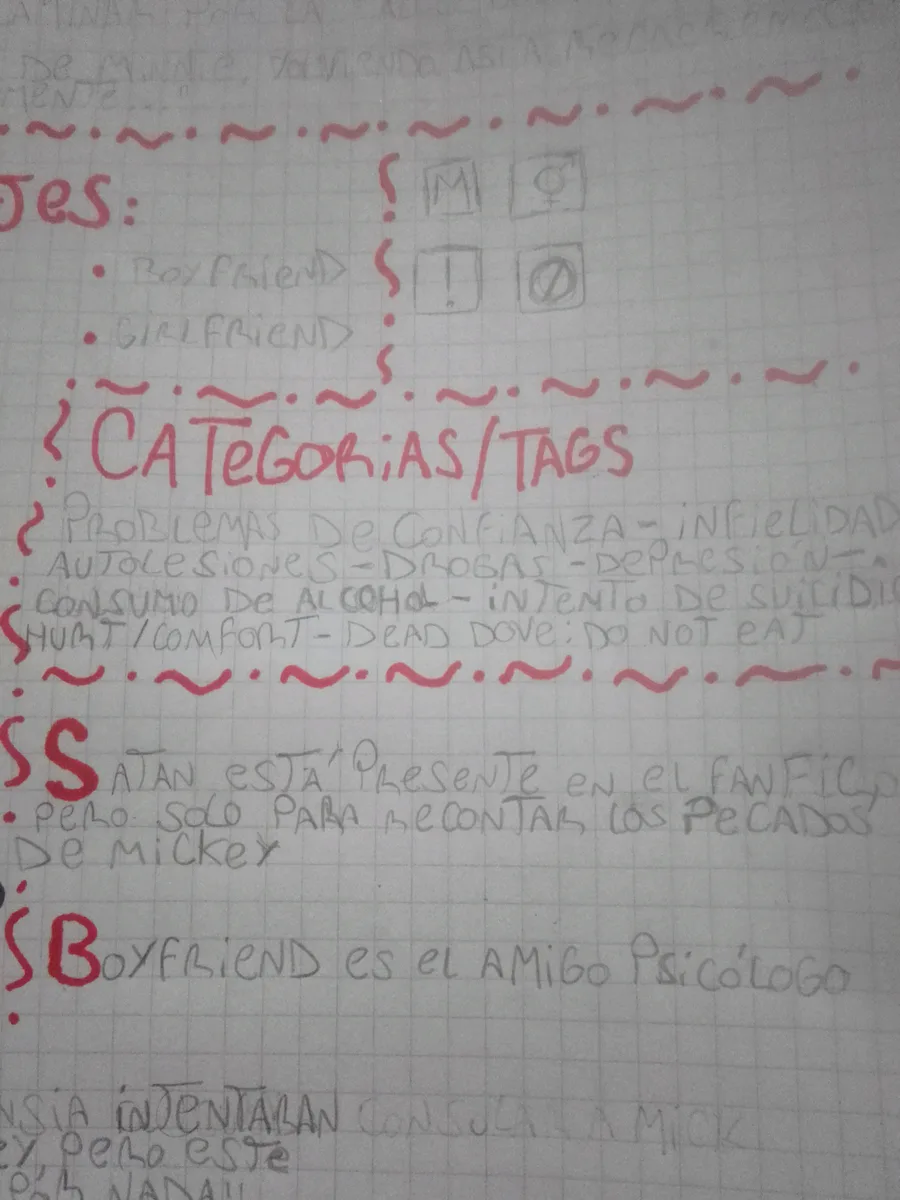 DE MINNIE, VOLVIENDO ASÍ A
MENTE..."
JES:
M
• BOYFRIEND
!
• GIRLFRIEND
CATEGORIAS/TAGS
PROBLEMAS DE CONFIANZA - INFIELIDAD
AUTOLESIONES - DROGAS - DEPRESIÓN -
CONSUMO DE ALCOHOL - INTENTO DE SUICIDIO
HURT/COMFORT - DEAD DOVE: DO NOT EAT
SATAN ESTÁ PRESENTE EN EL FANFIC,
PERO SOLO PARA RECONTAR LOS PECADOS
DE MICKEY
BOYFRIEND ES EL AMIGO PSICÓLOGO
NSIA INTENTARAN CONSOLAR A MICK
EY, PERO ESTE
POR NADA!!